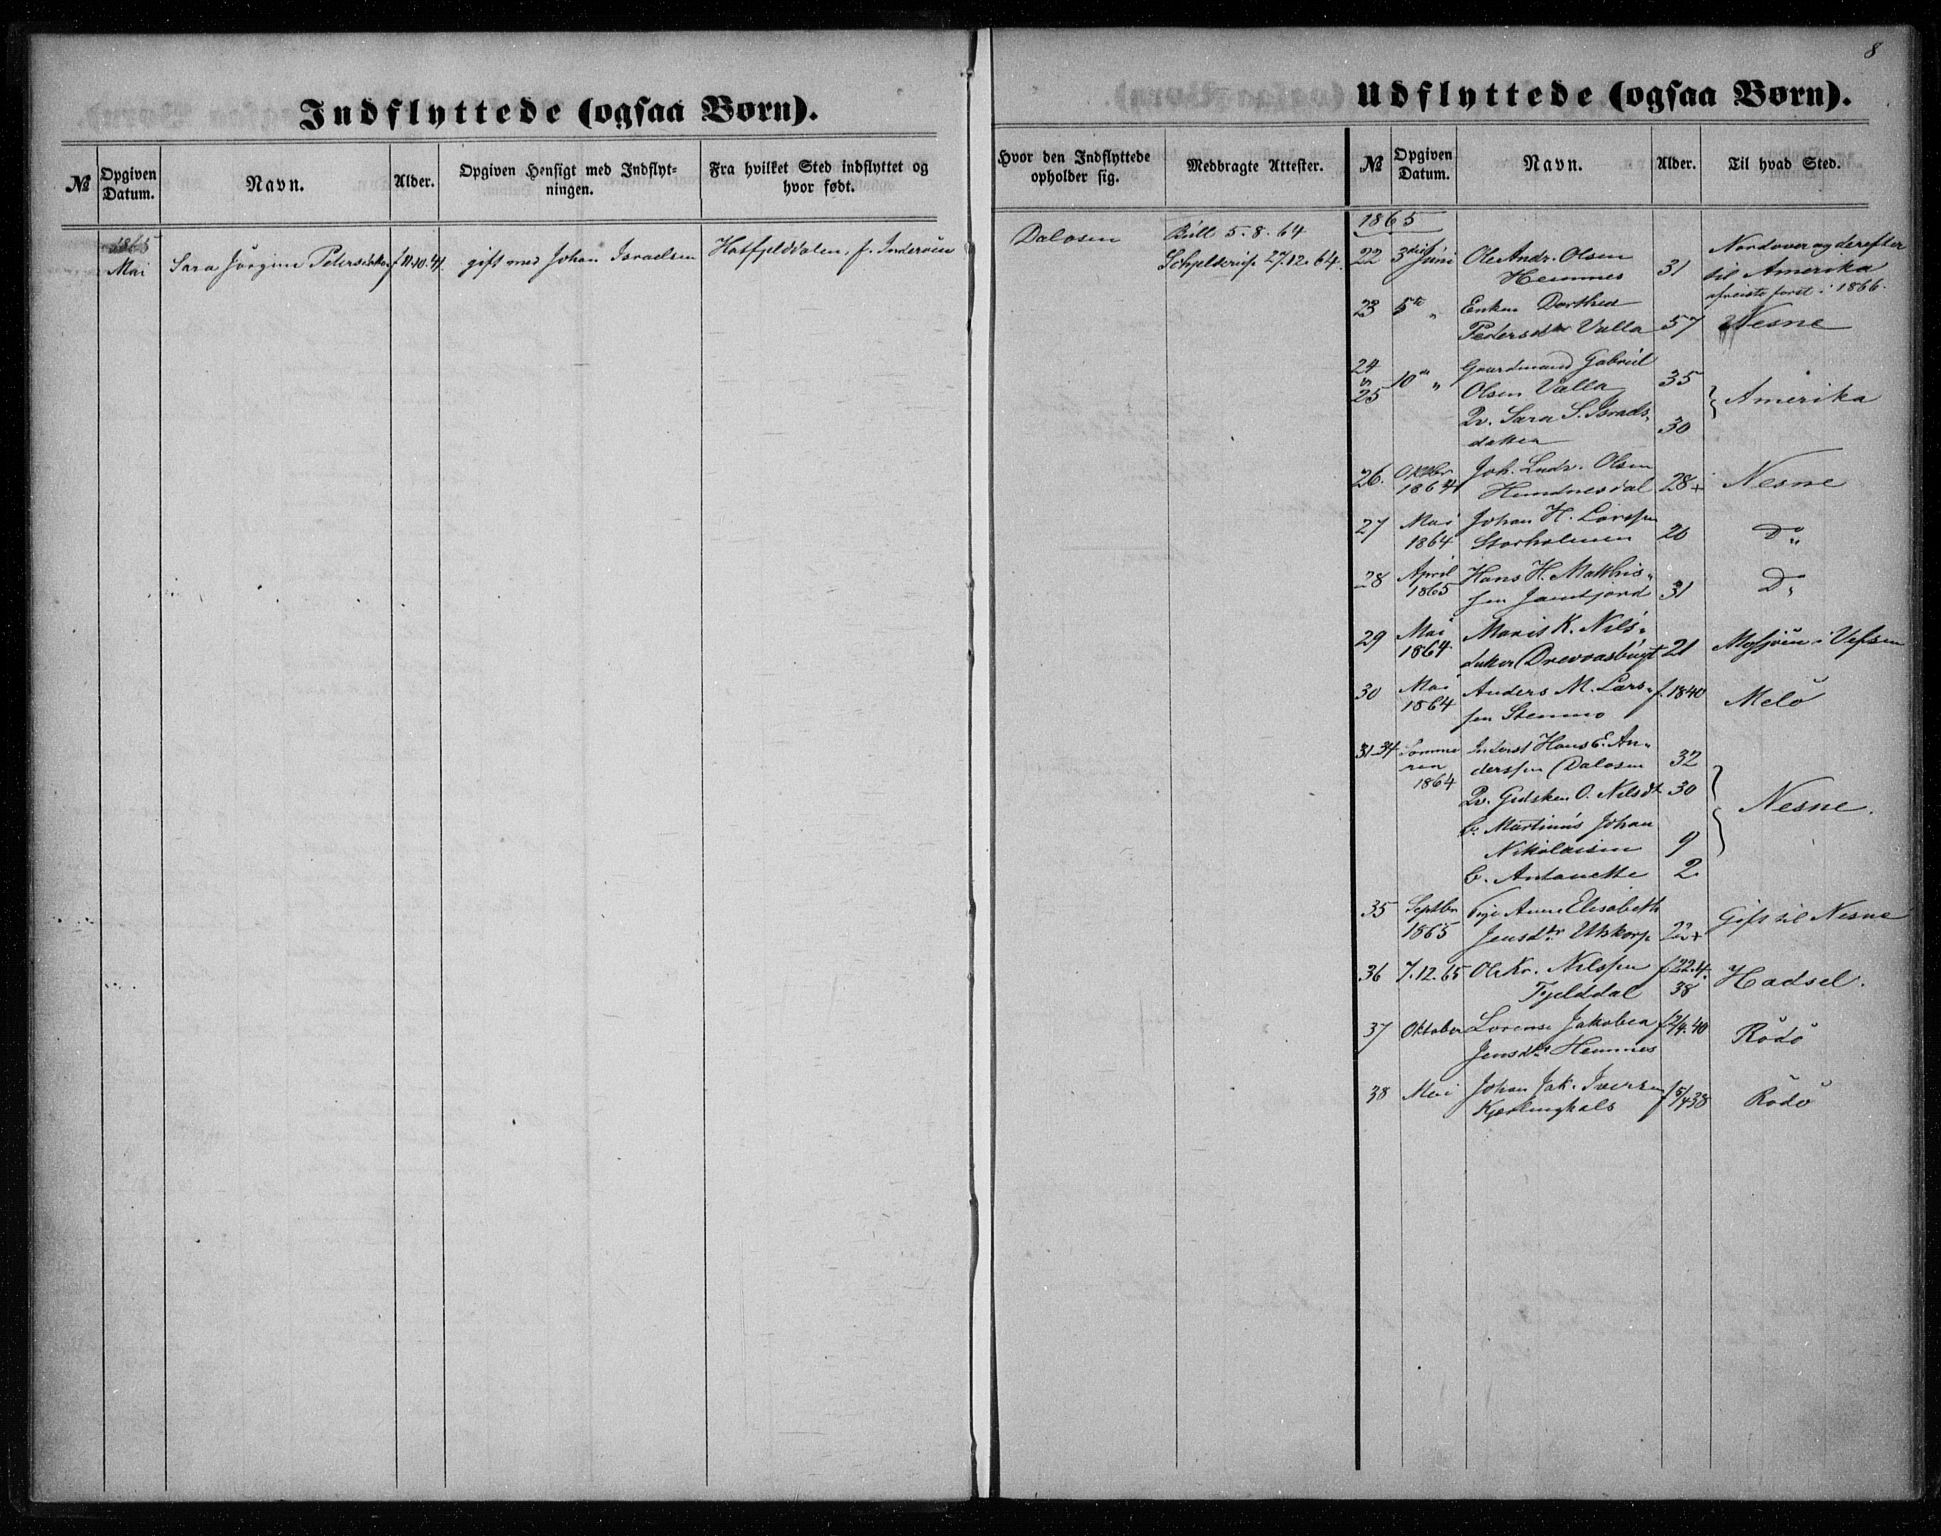 8
Indflyttede (ogsaa Børn).
Udflyttede (ogsaa Børn).
№ Opgiven Datum. Navn. Alder. Opgiven Hensigt med Indflyt-ningen. Fra hvilket Sted indflyttet og hvor født. Hvor den Indflyttede opholder sig. Medbragte Attester.
№ Opgiven Datum. Navn. Alder. Til hvad Sted.
1865
Mai Sara Jörgine Petersdatter f 11.10.41. gift med Johan Israelsen Hatfjelddalen, f. Inderöen Dalosen Bull 5.8.64
27.12.64.
1865
22 3die Juni Ole Andr. Olsen
Hemnes 31 Nordover og derefter
til Amerika
afreiste først i 1866.
23 5te " Enken Dorthea
Pedersdtr Valla 57 Nesne
24 Gaardmand Gabriel
25 10de " Olsen Valla 35
Qv. Sara S. Israels-
datter 30 } Amerika
26. Oktbr
1864 Joh. Ludv. Olsen
Hundnesdal 28+ Nesne
27 Mai
1864 Johan H. Larssen
Storholmen 20 Do "
28 April
1865 Hans H. Matthis-
sen Jamtjord 31 Do "
29 Mai
1864 Maris K. Nils-
datter (Drevvasbugt 21 Mosjöen i Vefsen
30 Mai
1864 Anders M. Lars-
sen Stenmo f. 1840 Melö
31-34 Somme
ren
1864 Inderst Hans E. An-
derssen (Dalosen 32
Qv. Gidsken O. Nilsdt 30
b. Martinus Johan
Nikolaisen 9
b. Antonette 2 } Nesne.
35 Septbr
1865 Pige Anne Elisabeth
Jensdtr Utskarp 22+ Gift til Nesne
36 7.12.65 Ole Kr. Nilssen
Fjelddal f 22.4.
38 Hadsel.
37 Oktober Lorense Jakobea
Jensdtr Hemnes f 2/4.40 Rödö
38 Mai Johan Jak. Iversen
Kjerlinghals f 5/4 38 Rödö